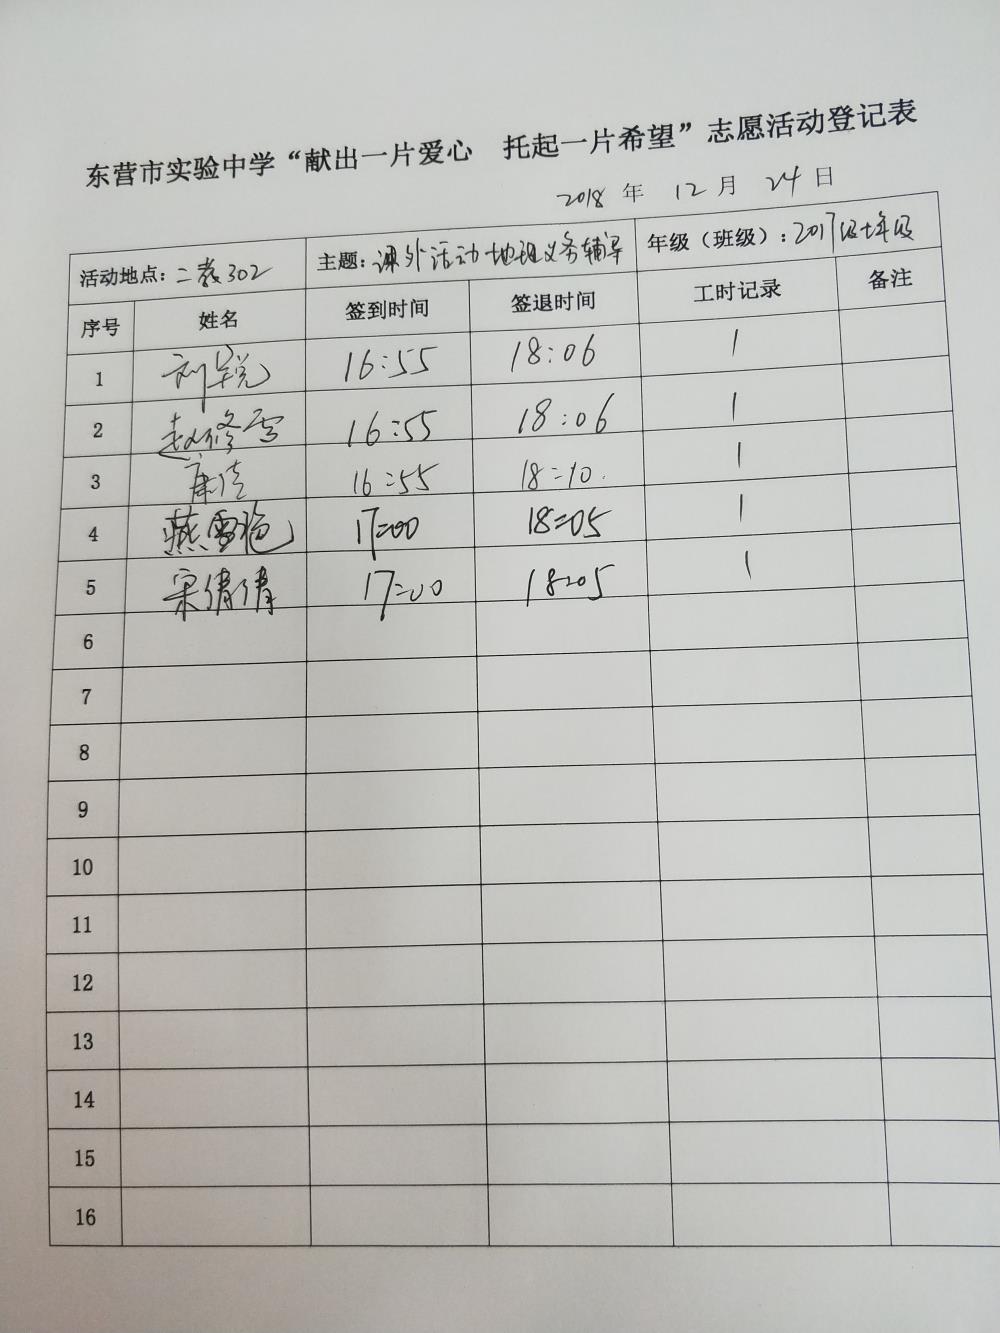 东营市实验中学“献出一片爱心 托起一片希望”志愿活动登记表
2018 年 12 月 24 日
活动地点：二教302 主题：课外活动地理义务辅导 年级（班级）：2017级七年级
序号 姓名 签到时间 签退时间 工时记录 备注
1 刘锐 16:55 18:06 1
2 赵修雪 16:55 18:06 1
3 16:55 18:10. 1
4 燕雪艳 17:00 18:05 1
5 宋倩倩 17:00 18:05 1
6
7
8
9
10
11
12
13
14
15
16